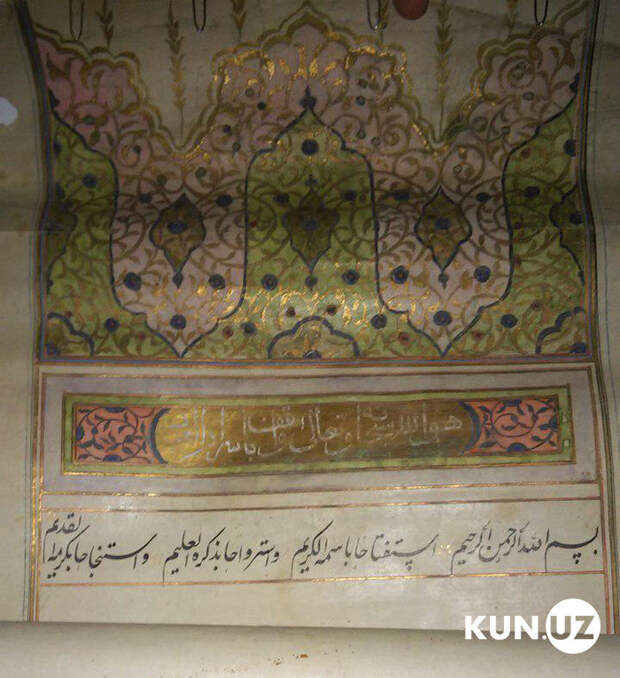 هو الله سبحانه و تعالى
بسم الله الرحمن الرحيم استفتاحا باسمه الكريم واسترواحا بذكره العليم واستنجاحا بكرمه القديم
KUN.UZ